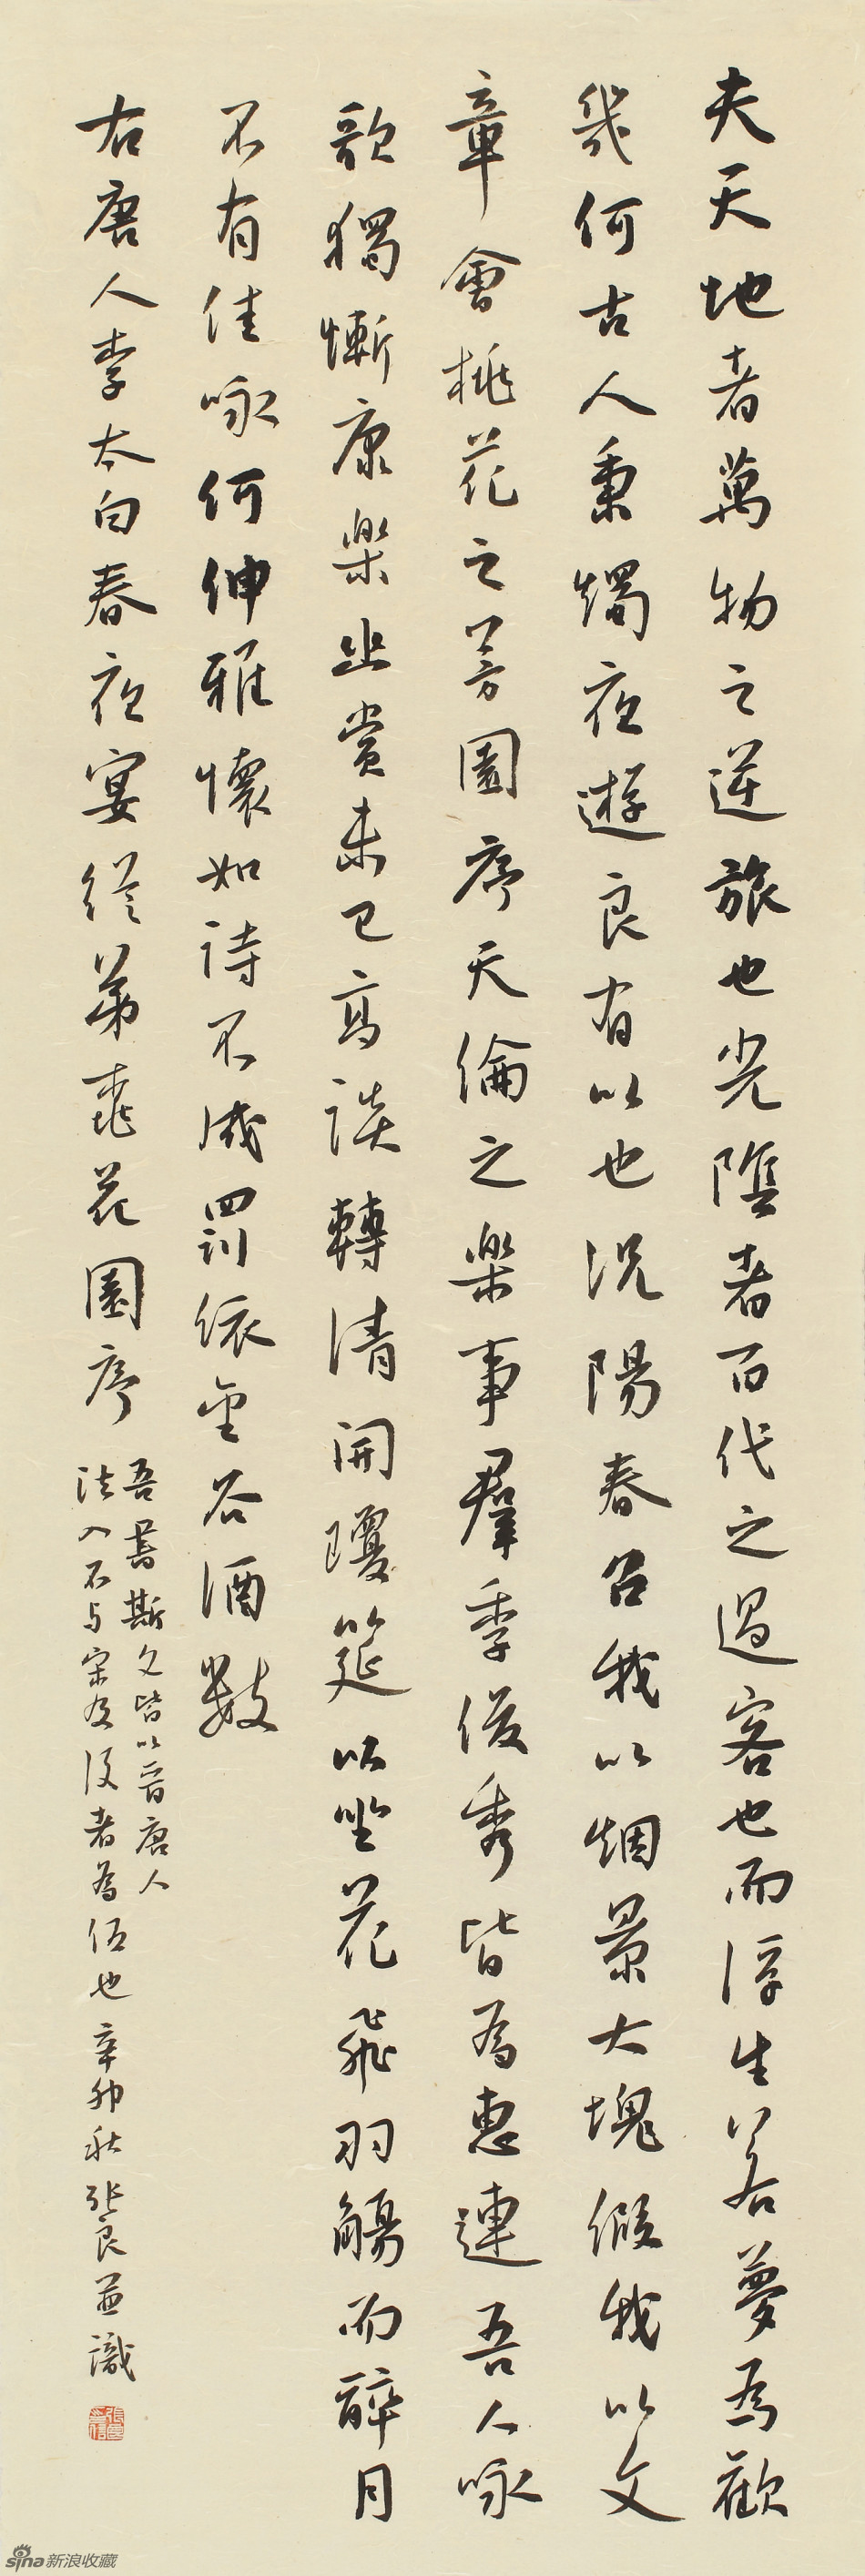 夫天地者萬物之逆旅也光陰者百代之過客也而浮生若夢為歡
幾何古人秉燭夜遊良有以也況陽春召我以烟景大塊假我以文
章會桃花之芳園序天倫之樂事羣季俊秀皆為惠連吾人詠
歌獨慚康樂幽賞未已高談轉清開瓊筵以坐花飛羽觴而醉月
不有佳詠何伸雅懷如詩不成罰依金谷酒數
右唐人李太白春夜宴從弟桃花園序
吾書斯文皆以晉唐人
法入不与宋及後者為伍也辛卯秋張良並識
sina新浪收藏